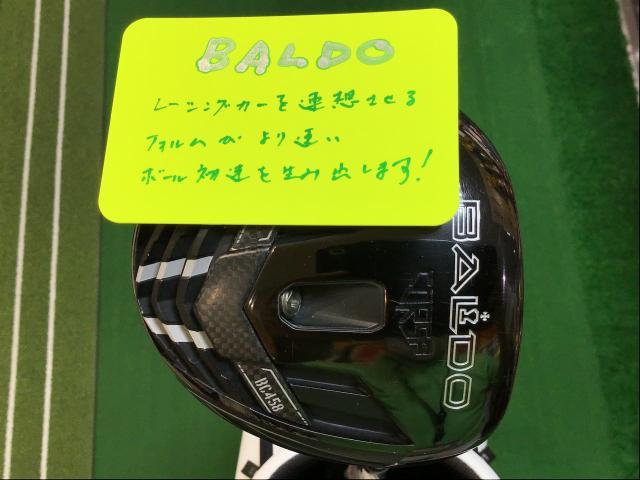 BALDO
レーシングカーを連想させる
フォルムがより速い
ボール初速を生み出します!
BALDO
BC458